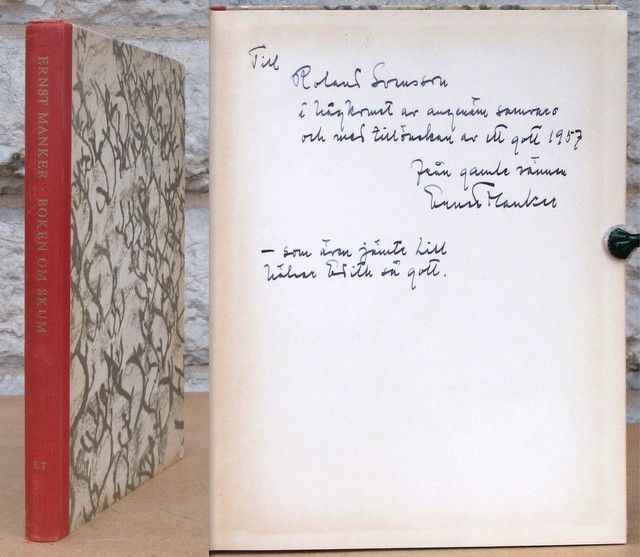 ERNST MANKER · BOKEN OM SKUM
LT
Till
Roland Svensson
i hågkomst av angenäm samvaro
och med tillönskan av ett gott 1957
från gamle vännen
Ernst Manker
– som även jämte Lill
hälsar Edith så gott.